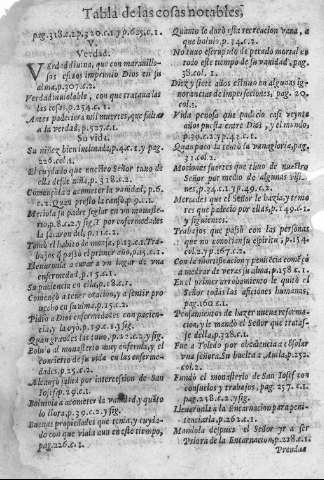 Tabla de las cosas notables,
pag.318.c.2.p.320.c.1 y p.625.c.1.
V.
Verdad.
Verdad diuina, que con marauillo-
sos efetos imprimio Dios en su
alma, p.307.c.2.
Verdad inuiolable, con que trataua las
las cosas, p.254.c.1.
Antes padeciera mil muertes, que faltar
a la verdad, p.527.c.1.
Su vida.
Su niñez bien inclinada, p.4.c.1. y pag.
226.col.1.
El cuydado que nuestro Señor tuuo de
ella desde niña, p.318.c.2.
Començada a acometer la vanidad, p.6.
c.2. Quan presto la cansò. 9.c.1.
Metiola su padre seglar en vn monaste-
rio, p.8.c.2. y sig. y por enfermedades
la sacaron del. p.11.c.2.
Tomò el habito de monja, p.13.c.1. Tra-
bajos que passò el primer año, p.15.c.1.
Lleuaronla a curar a vn lugar de vna
enfermedad, p.15.c.1.
Su paciencia en ella, p.18.c.1.
Començò a tener oracion, y a sentir pro
uecho en su alma, p.15.c.1.
Pidio a Dios enfermedades con pacien-
cia, y la oyò. p.19.c.1. y sig.
Quan grandes las tuuo, p.22.c.2. y sig.
Boluio al monasterio muy enferma, y el
concierto de su vida en las enferme-
dades, p.25.c.2.
Alcançò salud por intercession de San
Iosef, p.29.c.1.
Boluiola a acometer la vanidad, y quāto
lo llora, p.30.c.2. y sig.
Buenas propiedades que tenia, y cuyda-
do con que viuia aun en este tiempo,
pag.226.c.1.
Quanto le dañò esta recreacion vana, a
que boluio, p.34.c.2.
No tuuo escrupulo de pecado mortal en
todo este tiempo de su vanidad, pag.
38.col.1.
Diez y siete años estuuo en algunas ig-
norancias de imperfecciones, pag. 20.
col.1.
Vida penosa que padecio casi veynte
años puesta entre Dios, y el mundo,
p.39.c.2. y p.42.c.1.
Quan poca le tocò la vanagloria, pag.
31.col.2.
Mociones fuertes que tuuo de nuestro
Señor por medio de algunas visi-
nes, p.34.c.1. y p.49.c.2.
Mercedes que el Señor le hazia, y temo
res que padecio por ellas, p.149.c.1.
y siguientes.
Trabajos que passò con las personas
que no conocian su espiritu, p.154.
col.2. y p.167.c.2.
Con la mortificacion y penitencia començò
a medrar de veras su alma, p.158.c.1.
En el primer arrobamiento le quitò el
Señor todas las aficiones humanas,
pag.160.c.1.
Pensamientos de hazer nueua reforma-
cion, y le mandò el Señor que tratas-
se della, p.328.c.1.
Fue a Toledo por obediencia a consolar
vna señora. Su buelta a Auila, p.252.
col.2.
Fundò el monasterio de San Iosef con
consuelos y trabajos, pag. 237. c.1.
pag.258.c.2. y sig.
Lleuaronla a la Encarnacion para peni-
tenciarla, p.262.c.1.
Mandola despues el Señor yr a ser
Priora de la Encarnacion, p.228.c.1.
Prenda-